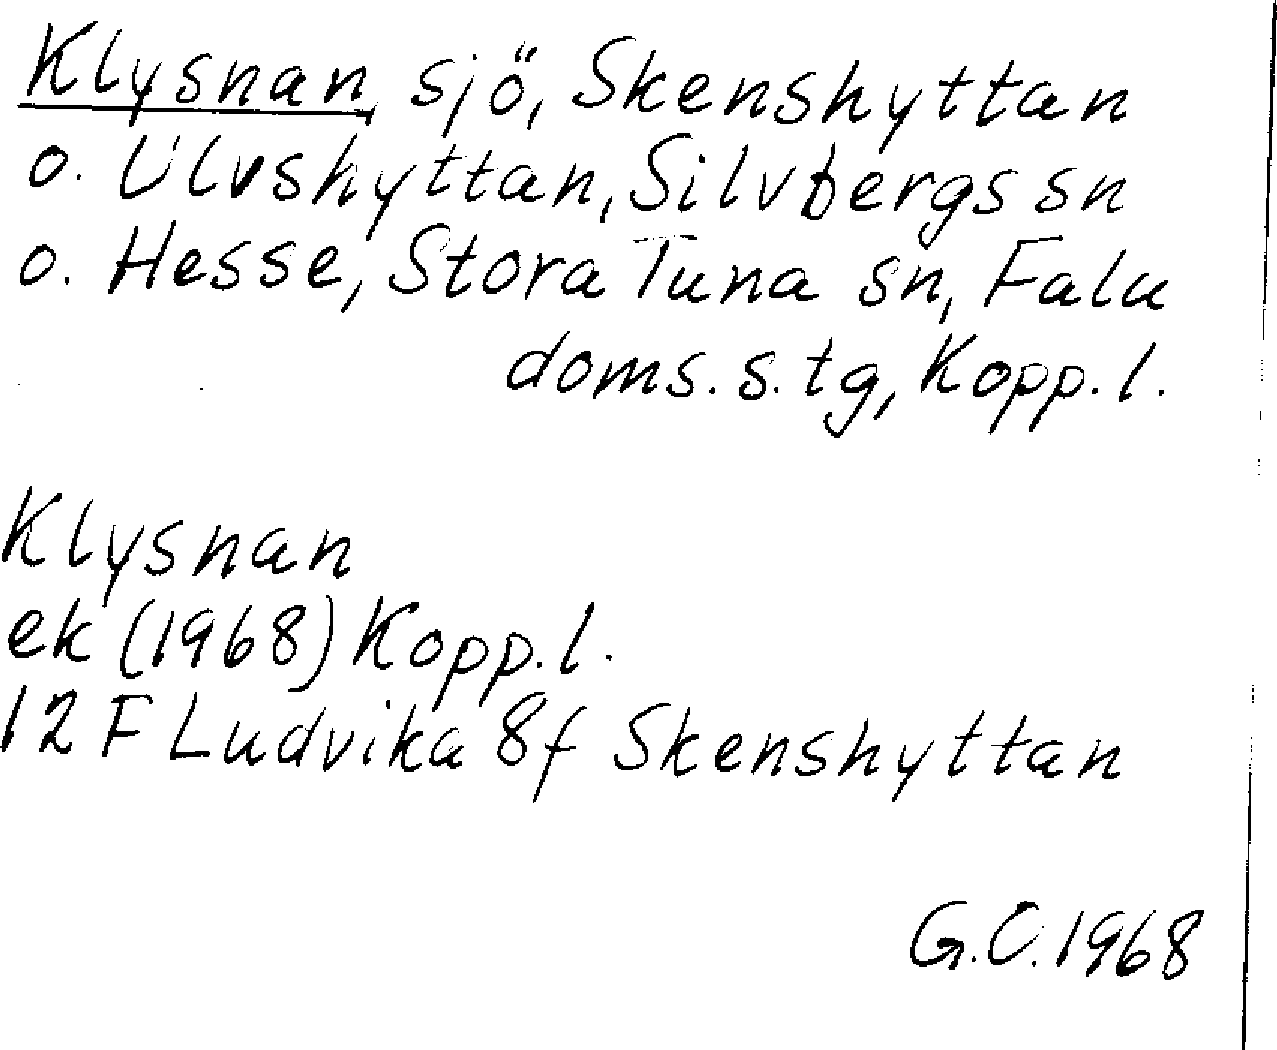 Klysnan, sjö, Skenshyttan
o. Ulvshyttan, Silvbergs sn
o. Hesse, Stora Tuna sn, Falu
doms. s. tg, Kopp. l.
Klysnan
ek (1968) Kopp. l.
12 F Ludvika 8f Skenshyttan
G.O. 1968